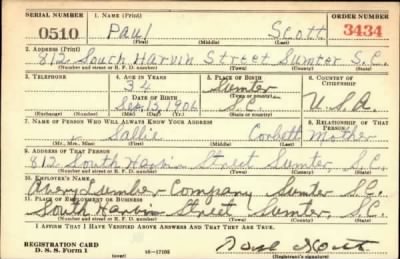 SERIAL NUMBER 1. NAME (Print) ORDER NUMBER
0510 Paul Scott 3434
(First) (Middle) (Last)
2. ADDRESS (Print)
812 South Harvin Street Sumter S.C.
(Number and street or R. F. D. number) (Town) (County) (State)
3. TELEPHONE 4. AGE IN YEARS 5. PLACE OF BIRTH 6. COUNTRY OF CITIZENSHIP
34 Sumter
DATE OF BIRTH (Town or county)
Sep. 13, 1906 S.C. U.S.A
(Exchange) (Number) (Mo.) (Day) (Yr.) (State or country)
7. NAME OF PERSON WHO WILL ALWAYS KNOW YOUR ADDRESS 8. RELATIONSHIP OF THAT PERSON
Sallie Corbett Mother
(Mr., Mrs., Miss) (First) (Middle) (Last)
9. ADDRESS OF THAT PERSON
812 South Harvin Street Sumter, S.C.
(Number and street or R. F. D. number) (Town) (County) (State)
10. EMPLOYER'S NAME
Avery Lumber Company Sumter S.C.
11. PLACE OF EMPLOYMENT OR BUSINESS
South Harvin Street Sumter, S.C.
(Number and street or R. F. D. number) (Town) (County) (State)
I AFFIRM THAT I HAVE VERIFIED ABOVE ANSWERS AND THAT THEY ARE TRUE.
REGISTRATION CARD
D. S. S. Form 1 16-17105 Paul Scott
(Registrant's signature)